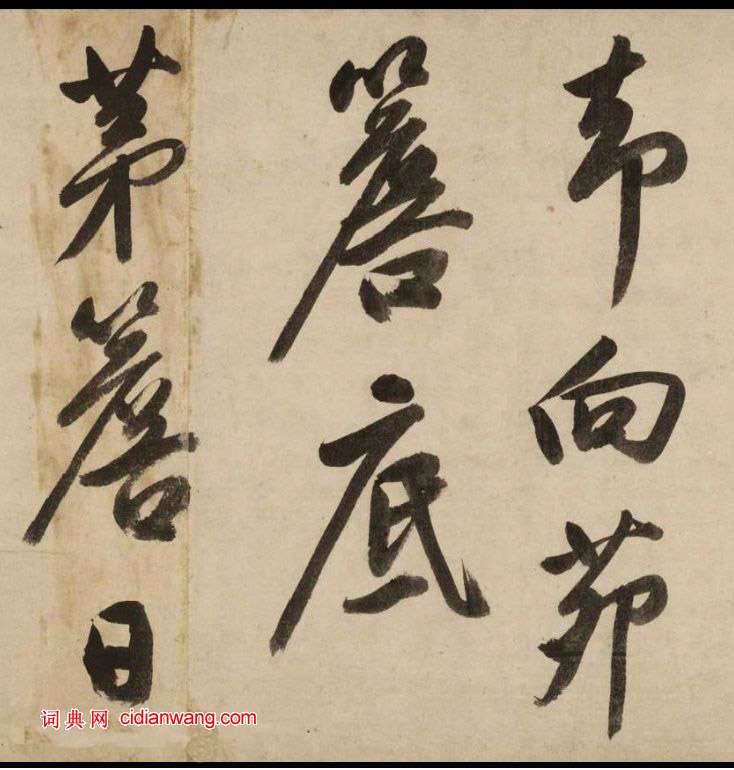 却向茆
簷底
茅簷日
词典网 cidianwang.com